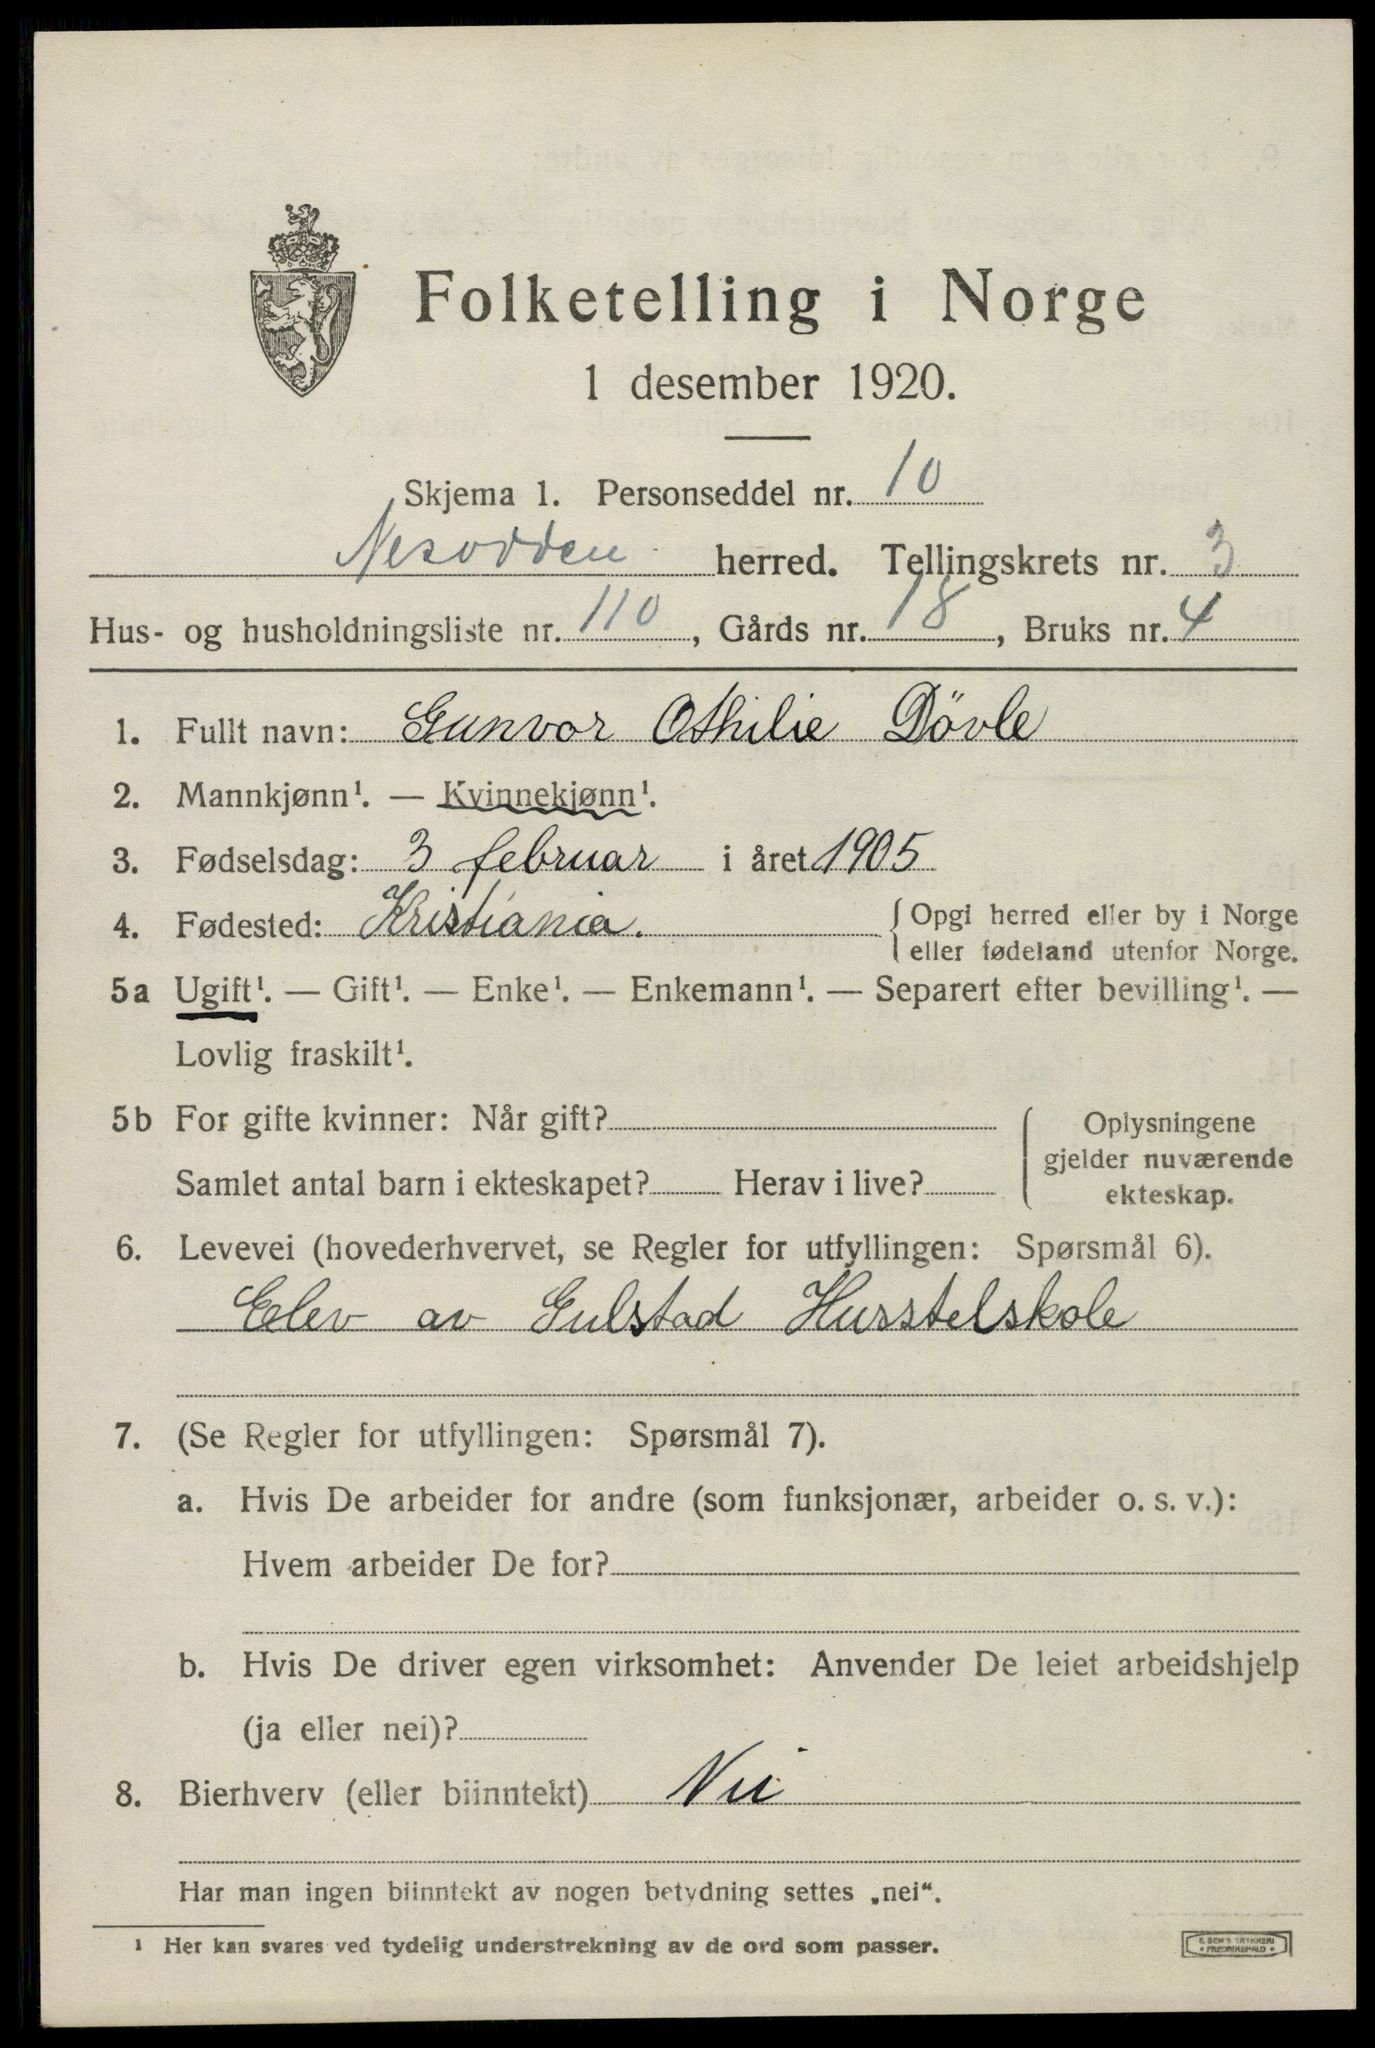 Folketelling i Norge
1 desember 1920.
Skjema 1. Personseddel nr. 10
Nesodden herred. Tellingskrets nr. 3
Hus- og husholdningsliste nr. 110, Gårds nr. 18, Bruks nr. 4
1. Fullt navn: Gunvor Othilie Dövle
2. Mannkjønn¹. — Kvinnekjønn¹.
3. Fødselsdag: 3 februar i året 1905
4. Fødested: Kristiania. { Opgi herred eller by i Norge
eller fødeland utenfor Norge.
5a Ugift¹. — Gift¹. — Enke¹. — Enkemann¹. — Separert efter bevilling¹. —
Lovlig fraskilt¹.
5b For gifte kvinner: Når gift?
Samlet antal barn i ekteskapet? Herav i live?
Oplysningene
gjelder nuværende
ekteskap.
6. Levevei (hovederhvervet, se Regler for utfyllingen: Spørsmål 6).
Elev av Gulstad Husstelskole
7. (Se Regler for utfyllingen: Spørsmål 7).
a. Hvis De arbeider for andre (som funksjonær, arbeider o. s. v.):
Hvem arbeider De for?
b. Hvis De driver egen virksomhet: Anvender De leiet arbeidshjelp
(ja eller nei)?
8. Bierhverv (eller biinntekt) Nei
Har man ingen biinntekt av nogen betydning settes „nei“.
¹ Her kan svares ved tydelig understrekning av de ord som passer.
E. SEM'S TRYKKERI
• FREDRIKSHALD •